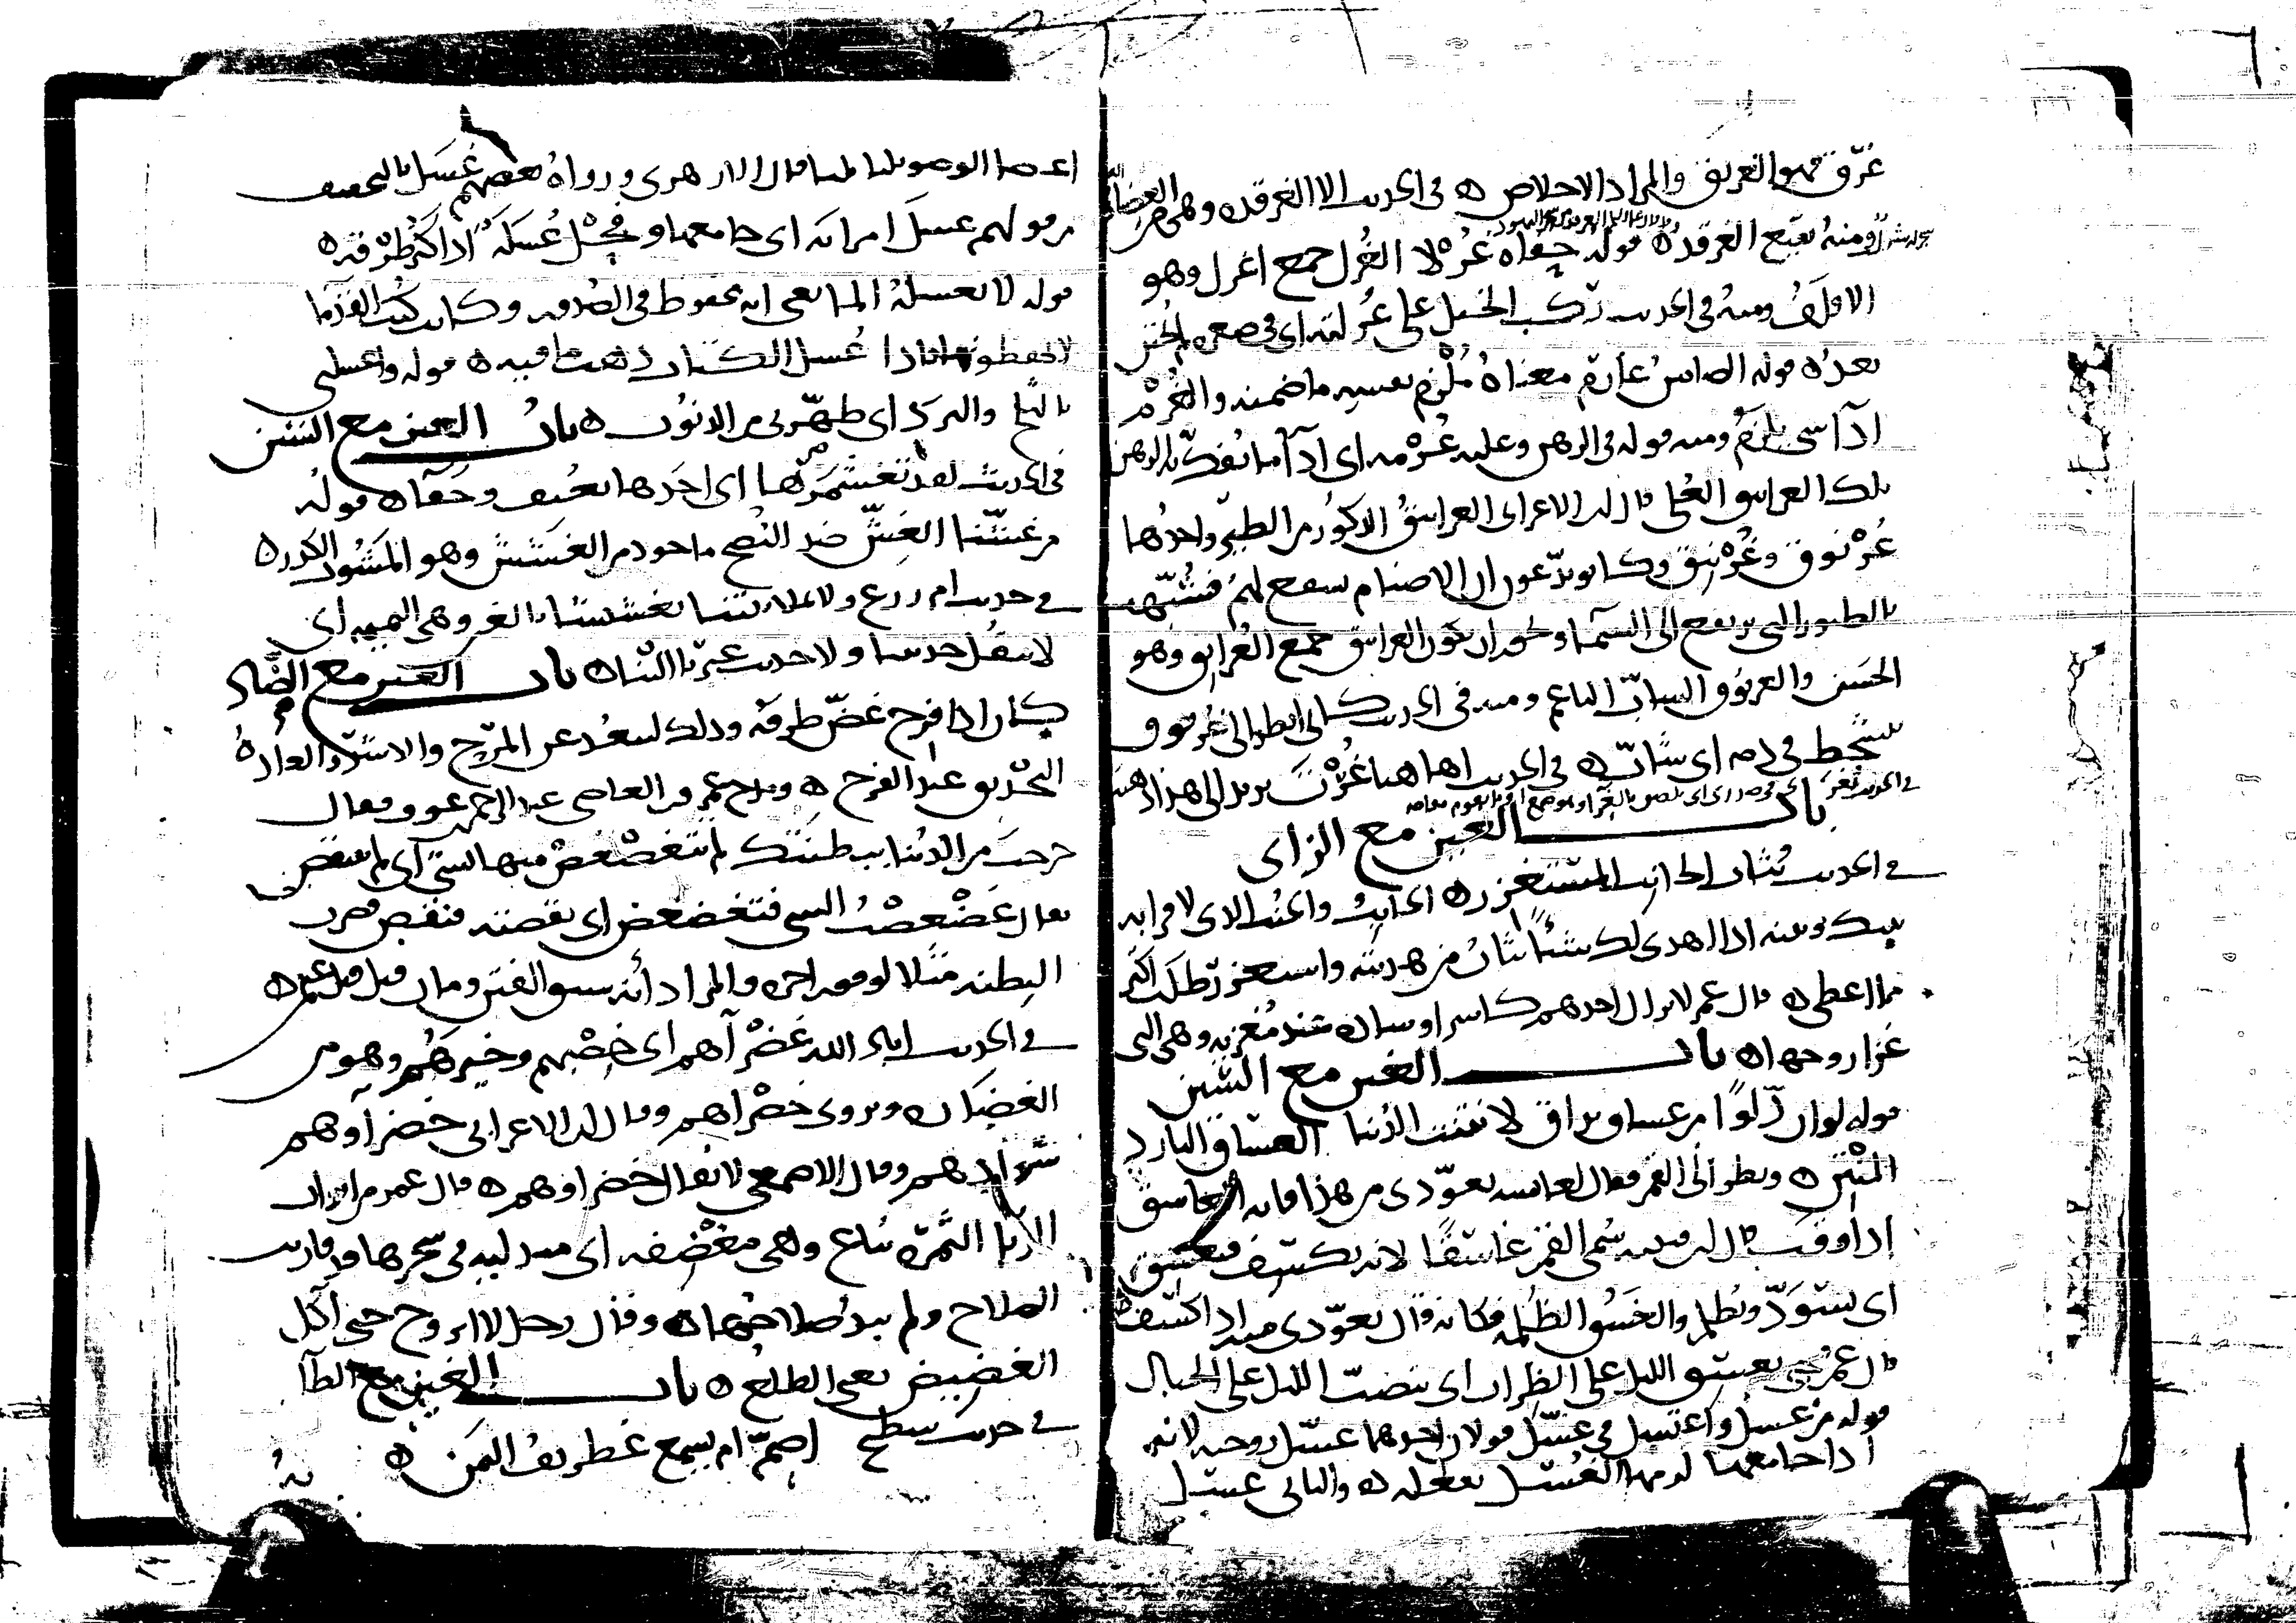 غرق فهو الغريق والمراد الاخلاص ه في الحديث الا الغرقده وهي من العضاه
ومنه بقيع الغرقد ه قوله حفاه غرلا الغرل جمع اغرل وهو
الاقلف ومنه في الحديث ركب الخيل على غرلته اي في صغره لم يختن
بعد ه قوله الضامن غارم معناه ملزم نفسه ما ضمنه والغرم
ادآ شي يلزم ومنه قوله في الرهن وعليه غرمه اي ادآ ما يفك به الرهن
تلك الغرانيق العلى قال ابن الاعرابي الغرانيق الذكور من الطير واحدها
غرنوق وغرنيق وكانوا يدعون ان الاصنام تشفع لهم فشبهت
بالطيور التي ترتفع الى السما ويجوز ان تكون الغرانيق جمع الغرانق وهو
الحسن والغرنوق الشاب الناعم ومنه في الحديث كاني انظر الى غرنوق
يتشحط في دمه اي شاب ه في الحديث هاهنا غرت يريد الى هذا ذهبت
باب الغين مع الزاى
في الحديث يثاب الجانب المستغزر ه الجانب والجنب الذي لا قرابه
بينك وبينه اذا اهدى لك شيئا يثاب من هديته واستغزر طلب اكثر
مما اعطى ه قال عمر لا يزال احدهم كاسرا وساده عند مغزيه وهي التي
غزا زوجها ه باب الغين مع السين
قوله لو ان دلوا من غساق يراق لانتنت الدنيا الغساق البارد
المنتن ه ونظر الى القمر فقال لعايشه تعوذي من هذا فانه الغاسق
اذا وقب قال ابن قتيبه سمي القمر غاسقا لانه يكسف فيغسق
اي يسود ويظلم والغسق الظلمه فكانه قال تعوذي منه اذا كسف ه
قال عمر حتى يغسق الليل على الظراب اي ينصب الليل على الجبال
قوله من غسل واغتسل في غسل قولان احدهما غسل زوجته لانه
اذا جامعها لزمها الغسل بفعله ه والثاني غسل
اعضا الوضو ثلثا ثلثا قال الازهري ورواه بعضهم غسل بالتخفيف
من قولهم غسل امراته اي جامعها وفحل غسله اذا اكثر طرقه ه
قوله لا يغسله الما يعني انه محفوظ في الصدور وكانت كتب القدما
لا يحفظونها فاذا غسل الكتاب ذهب ما فيه ه قوله واغسلني
بالثلج والبرد اي طهرني من الذنوب ه باب الغين مع الشين
في الحديث لقد تغشمرها اي اخذها بعنف وجفاه قوله
من غشنا الغش ضد النصح ماخوذ من الغشش وهو المشوب الكدر ه
في حديث ام زرع ولا تملا بيتنا تغشيشا بالغين وهي النميمه اي
لا تنقل حديثنا ولا حديث غيرنا الينا ه باب الغين مع الضاد
كان اذا فرح غض طرفه وذلك ليبعد عن المرح والاشر والعاده
التحديق عند الفرح ه ومدح عمرو بن العاص عبد الرحمن بن عوف فقال
خرجت من الدنيا ببطنتك لم تتغضغض منها بشي اي لم ينقص
يقال غضغضت الشي فتغضغض اي نقصته فنقص فضرب
البطنه مثلا لوفور اجره والمراد أنه سبق الفتن ومات قبل
في الحديث اباد الله غضرآهم اي خصبهم وخيرهم وهو من
الغضاره ويروى خضراهم وقال ابن الاعرابي خضراوهم
سوادهم وقال الاصمعي لا يقال خضراوهم ه قال عمر من ابواب
الربا الثمره تباع وهي مغضفه اي متدليه في شجرها وقد قاربت
الصلاح ولم يبد صلاحها ه وقال رجل لا اتزوج حتى آكل
الغضيض يعني الطلع ه باب الغين مع الطآ
في حديث سطيح اصم ام يسمع غطريف اليمن ه